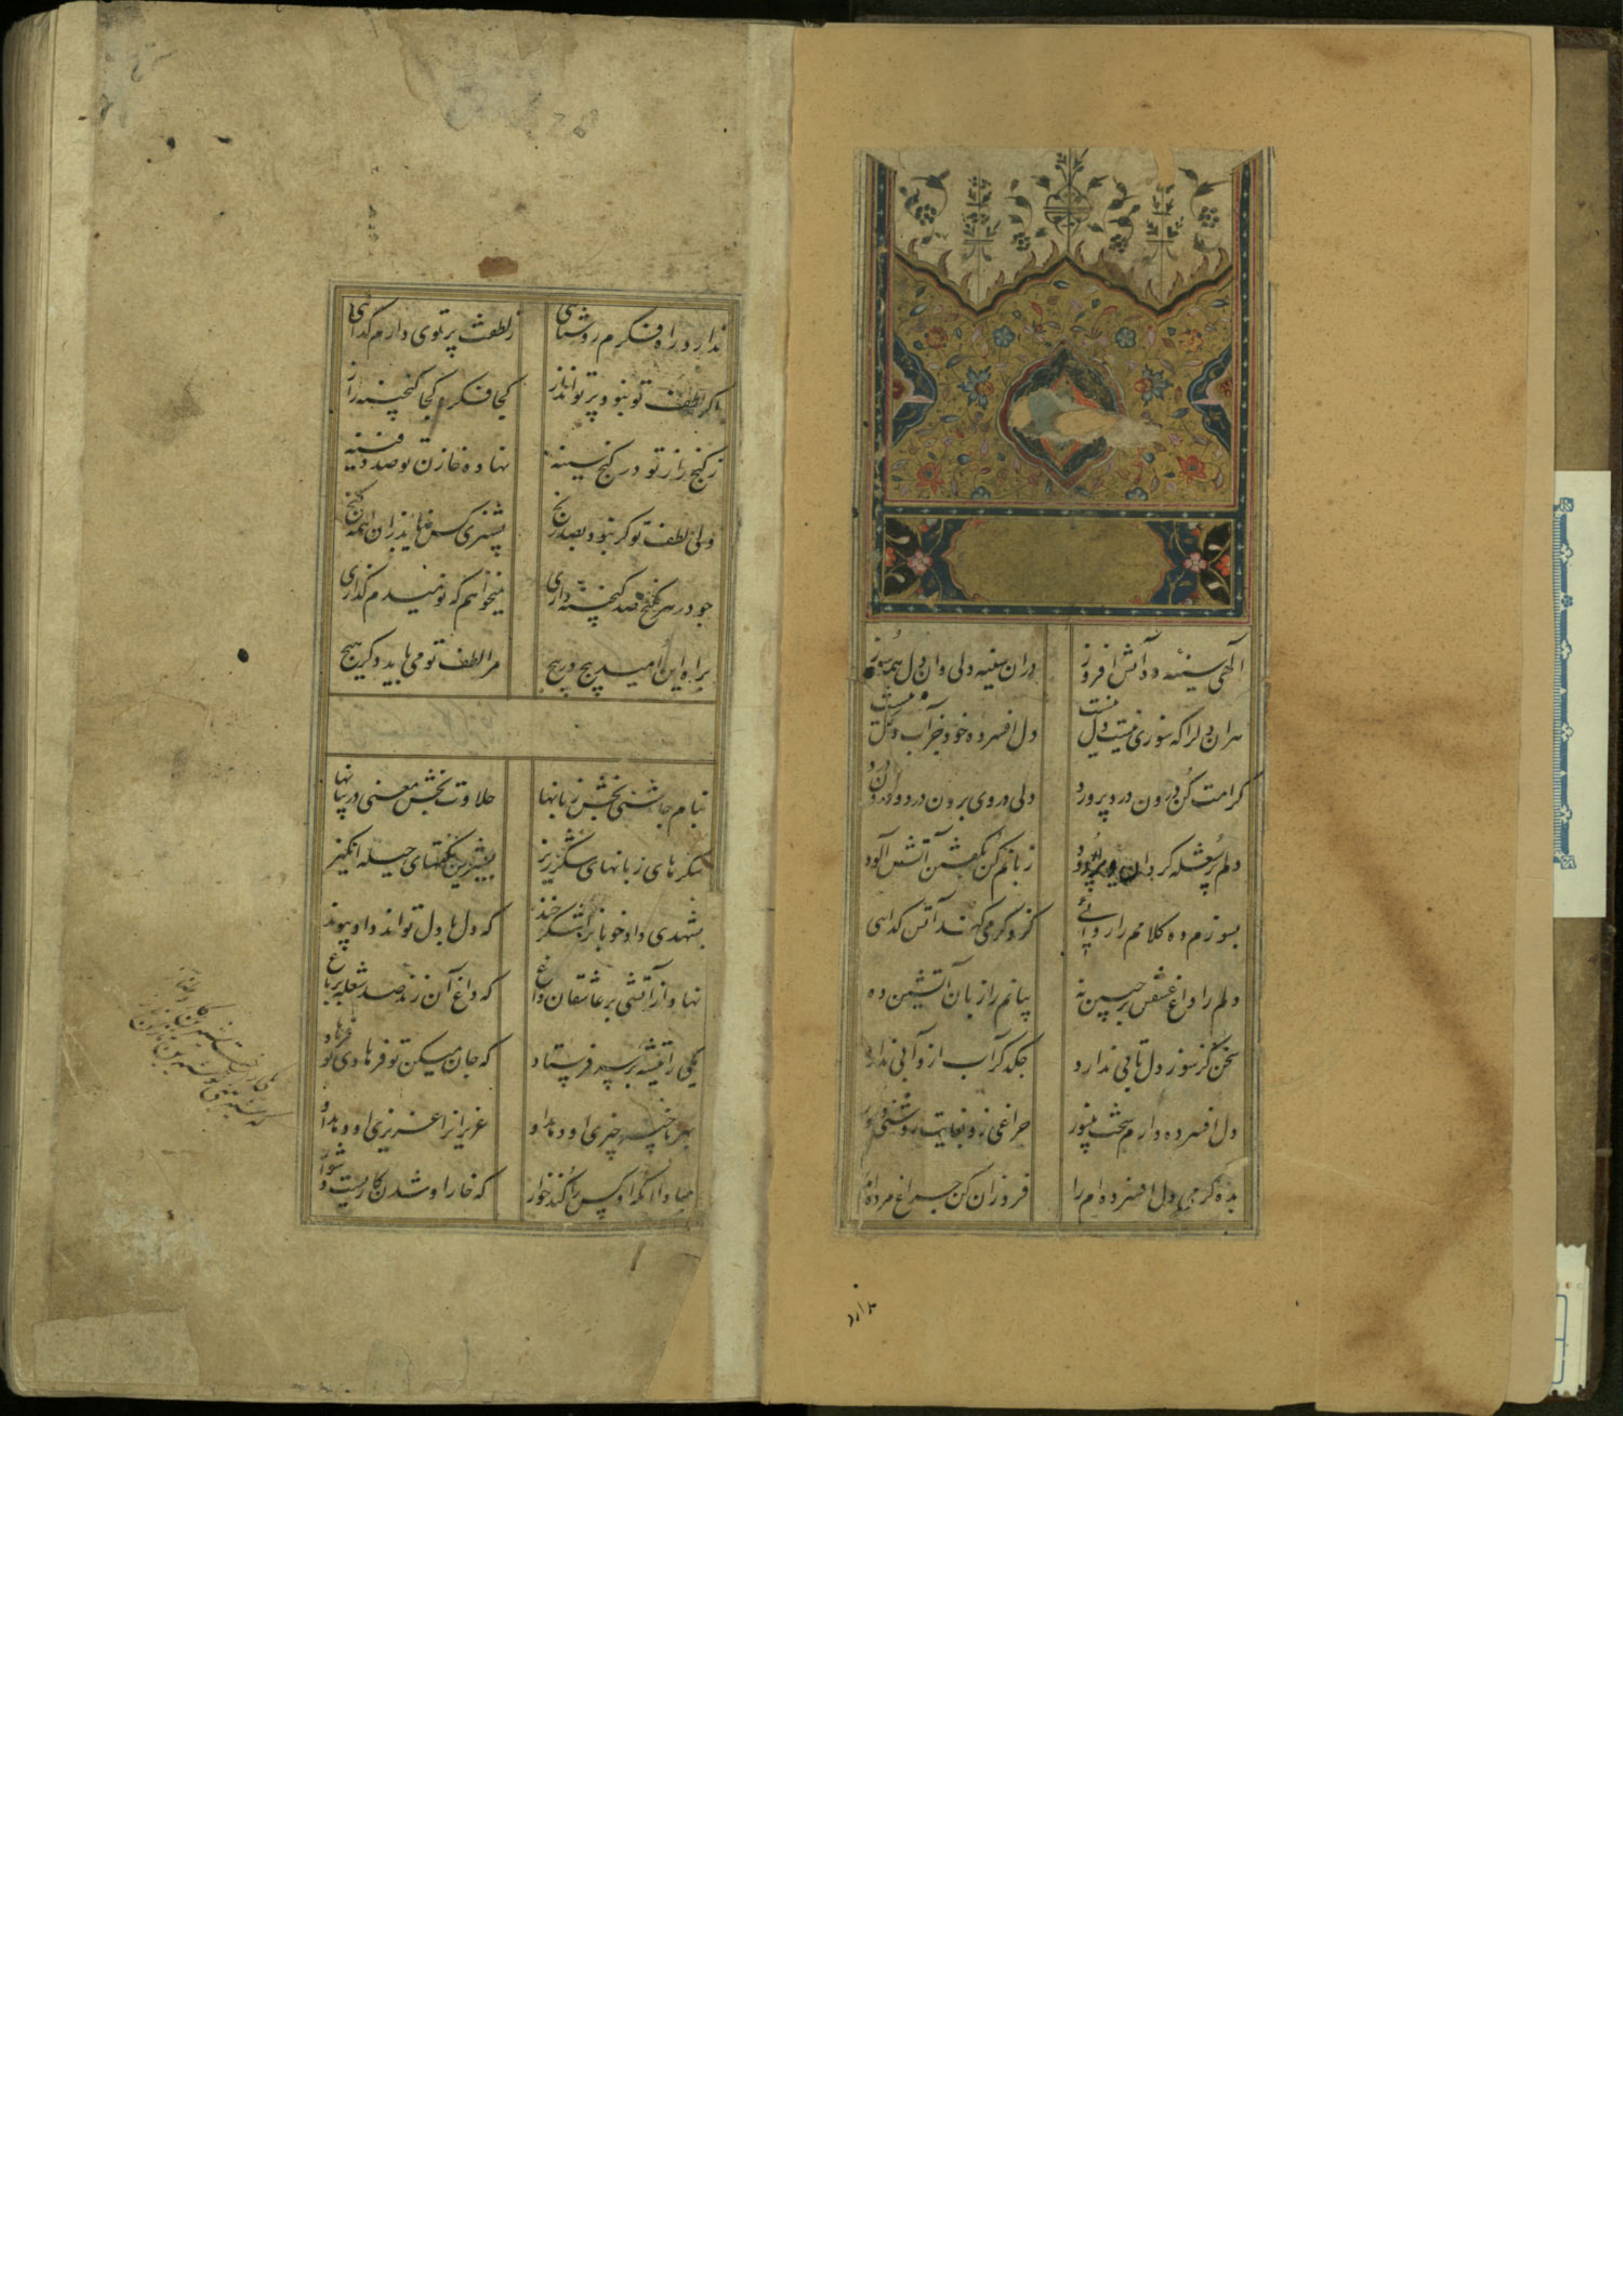 الهی سینهٔ ده آتش افروز دران سینه دلی وان دل همه سوز
هران دلرا که سوزی نیست دل نیست دل افسرده خود جز آب و گل نیست
کرامت کن درون درد پرورد دلی در وی برون درد و درون درد
دلم پر شعله گردان سینه پر دود زبانم کن بگفتن آتش آلود
بسوزم ده کلامم را روائی کزو گرمی کند آتش گدائی
دلم را داغ عشقی بر جبین نه بیانم را زبان آتشین ده
سخن کز سوز دل تابی ندارد چکد گر آب ازو آبی ندارد
دل افسرده دارم سخت بینور چراغی زو بغایت روشنی دور
بده گرمی دل افسرده ام را فروزان کن چراغ مرده ام را
ندارد
ندارد راه فکرم روشنائی ز لطفت پرتوی دارم گدائی
اگر لطف تو نبود پرتو انداز کجا فکر و کجا گنجینه راز
ز گنج راز تو در کنج سینه نهاده خازن تو صد دفینه
ولی لطف تو گر نبود بصد رنج پشیزی کس نیابد زان همه گنج
چو در هر کنج صد گنجینه داری نمیخواهم که نومیدم گذاری
براه این امید پیچ در پیچ مرا لطف تو می باید دگر هیچ
بنام چاشنی بخش زبانها حلاوت بخش معنی در بیانها
شکرهای زبانهای شکرریز بشیرین نکتهای حیله انگیز
بشهدی داد خوبانرا شکر خند که دل با دل تواند داد پیوند
نهاد از آتشی بر عاشقان داغ که داغ آن زند صد شعله بر باغ
یکی را تیشهٔ بر سر فرستاد که جان میکن تو فرهادی تو فرهاد
بهر ناچیز چیزی او دهد او عزیزانرا عزیزی او دهد او
مبادا آنکه او کس را کند خوار که خار او شدن کاریست دشوار